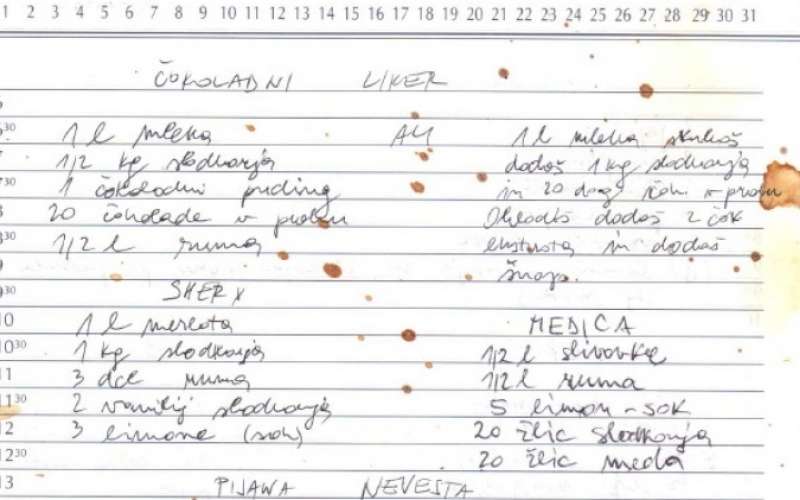 1 2 3 4 5 6 7 8 9 10 11 12 13 14 15 16 17 18 19 20 21 22 23 24 25 26 27 28 29 30 31
ČOKOLADNI LIKER
1 l mleka
1/2 kg sladkorja
1 čokoladni puding
20 čokolade v prahu
1/2 l ruma
ALI
1 l mleka skuhaš
dodaš 1 kg sladkorja
in 20 dag čok. v prahu
dodaš 2 čok
ekstrata in dodaš
šnops.
SHERY
1 l merlota
1 kg sladkorja
3 dcl ruma
2 vanilij sladkorja
3 limone (sok)
MEDICA
1/2 l slivovke
1/2 l ruma
5 limon - sok
20 žlic sladkorja
20 žlic meda
30
7
30
8
30
9
30
10
10 30
11
11 30
12
12 30
13
PIJAWA NEVESTA